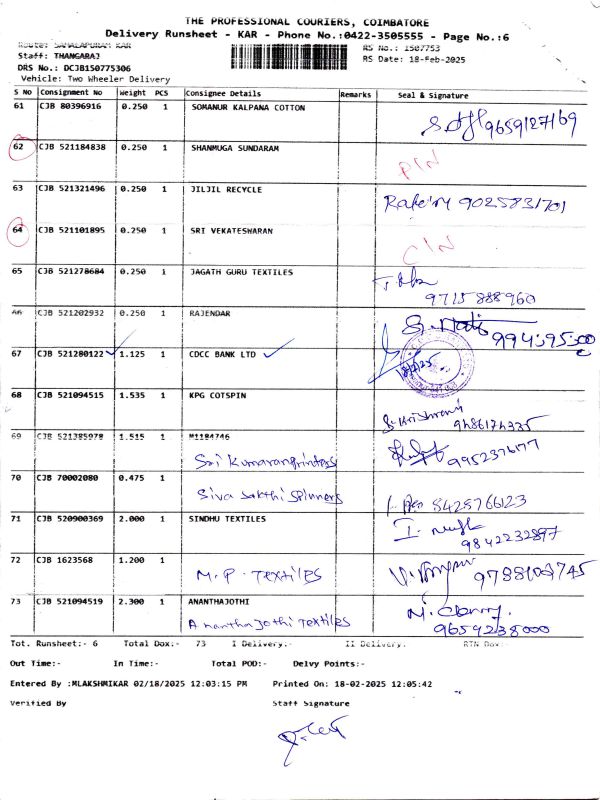 THE PROFESSIONAL COURIERS, COIMBATORE
Delivery Runsheet - KAR - Phone No.:0422-3505555 - Page No.:6
Route: SAMALAPURAM KAR RS No.: 1507753
Staff: THANGARAJ RS Date: 18-Feb-2025
DRS No.: DCJB150775306
Vehicle: Two Wheeler Delivery
S NO Consignment No Weight PCS Consignee Details Remarks Seal & Signature
61 CJB 80396916 0.250 1 SOMANUR KALPANA COTTON 9659127169
62 CJB 521184838 0.250 1 SHANMUGA SUNDARAM
63 CJB 521321496 0.250 1 JILJIL RECYCLE 9025831701
64 CJB 521101895 0.250 1 SRI VEKATESWARAN
65 CJB 521278684 0.250 1 JAGATH GURU TEXTILES 9715888960
66 CJB 521202932 0.250 1 RAJENDAR
67 CJB 521280122 1.125 1 CDCC BANK LTD
68 CJB 521094515 1.535 1 KPG COTSPIN
69 CJB 521385978 1.515 1 M1184746
Sri Kumaran printers 9952376177
70 CJB 70002080 0.475 1
Siva sakthi spinners 8428766123
71 CJB 520900369 2.000 1 SINDHU TEXTILES
9842232897
72 CJB 1623568 1.200 1
M.P. TEXTILES
73 CJB 521094519 2.300 1 ANANTHAJOTHI
Ananthajothi Textiles 9659238000
Tot. Runsheet:- 6 Total Dox:- 73 I Delivery:- II Delivery. RTN Dox:-
Out Time:- In Time:- Total POD:- Delvy Points:-
Entered By :MLAKSHMIKAR 02/18/2025 12:03:15 PM Printed On: 18-02-2025 12:05:42
Verified By Staff Signature